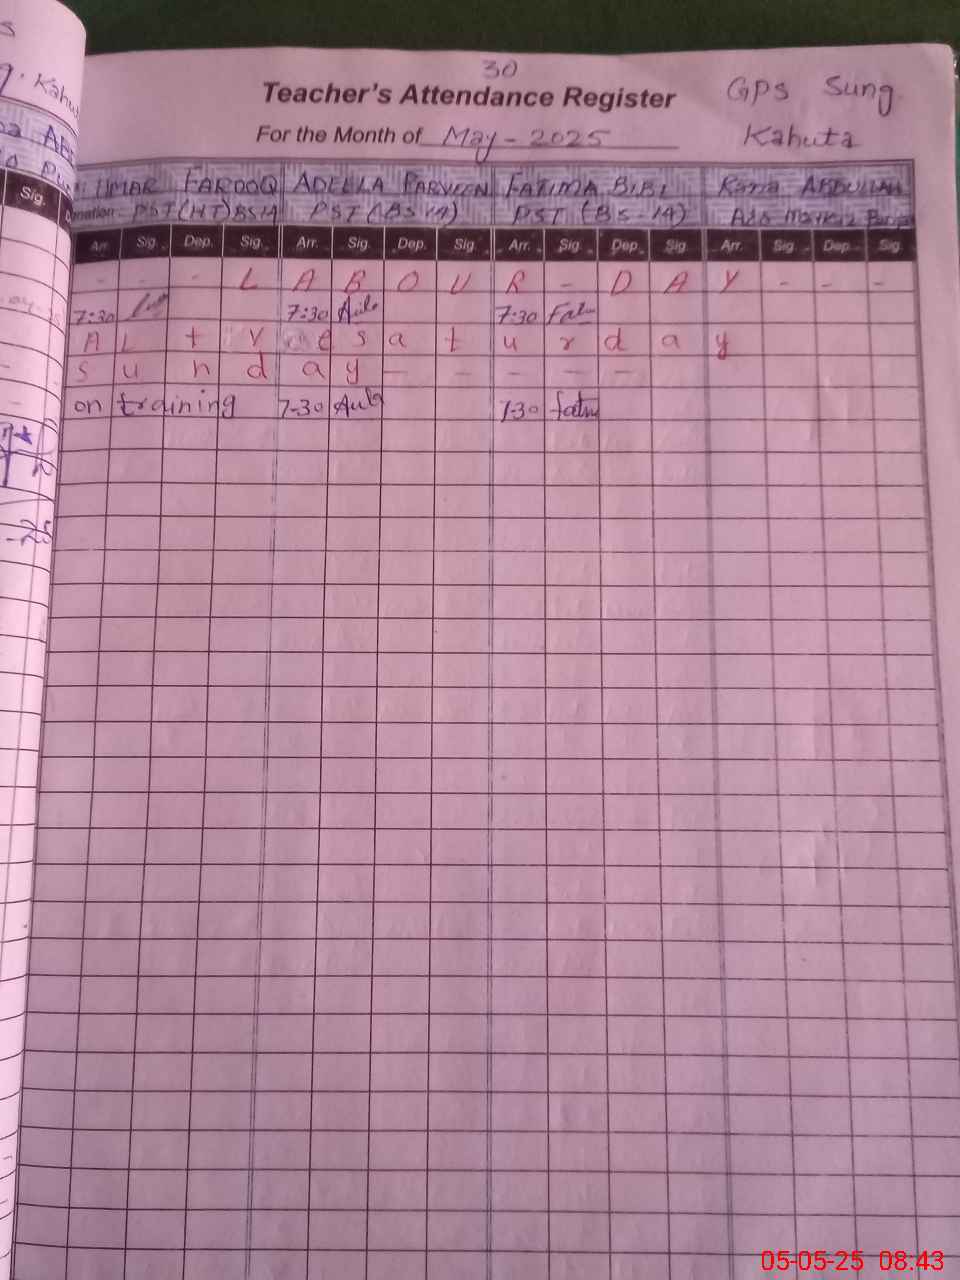 30
Teacher's Attendance Register
GPS Sung
For the Month of May - 2025
Kahuta
UMAR FAROOQ ADEELA PARVEEN FATIMA BIBI Rana ABDULLAH
PST (HT) BS14 PST (BS-14) PST (BS-14)
Arr. Sig. Dep. Sig. Arr. Sig. Dep. Sig. Arr. Sig. Dep. Sig. Arr. Sig. Dep. Sig.
- - - L A B O U R - D A Y - - -
7:30 7:30 7:30
A L t v e s a t u r d a y
s u n d a y - - - - -
on training 7-30 7-30
Kahu
Sig.
05-05-25 08:43